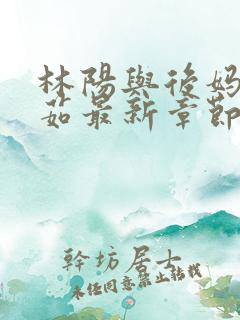 林陽與後妈
茹最新章節
幹坊居士
未经同意禁止转载